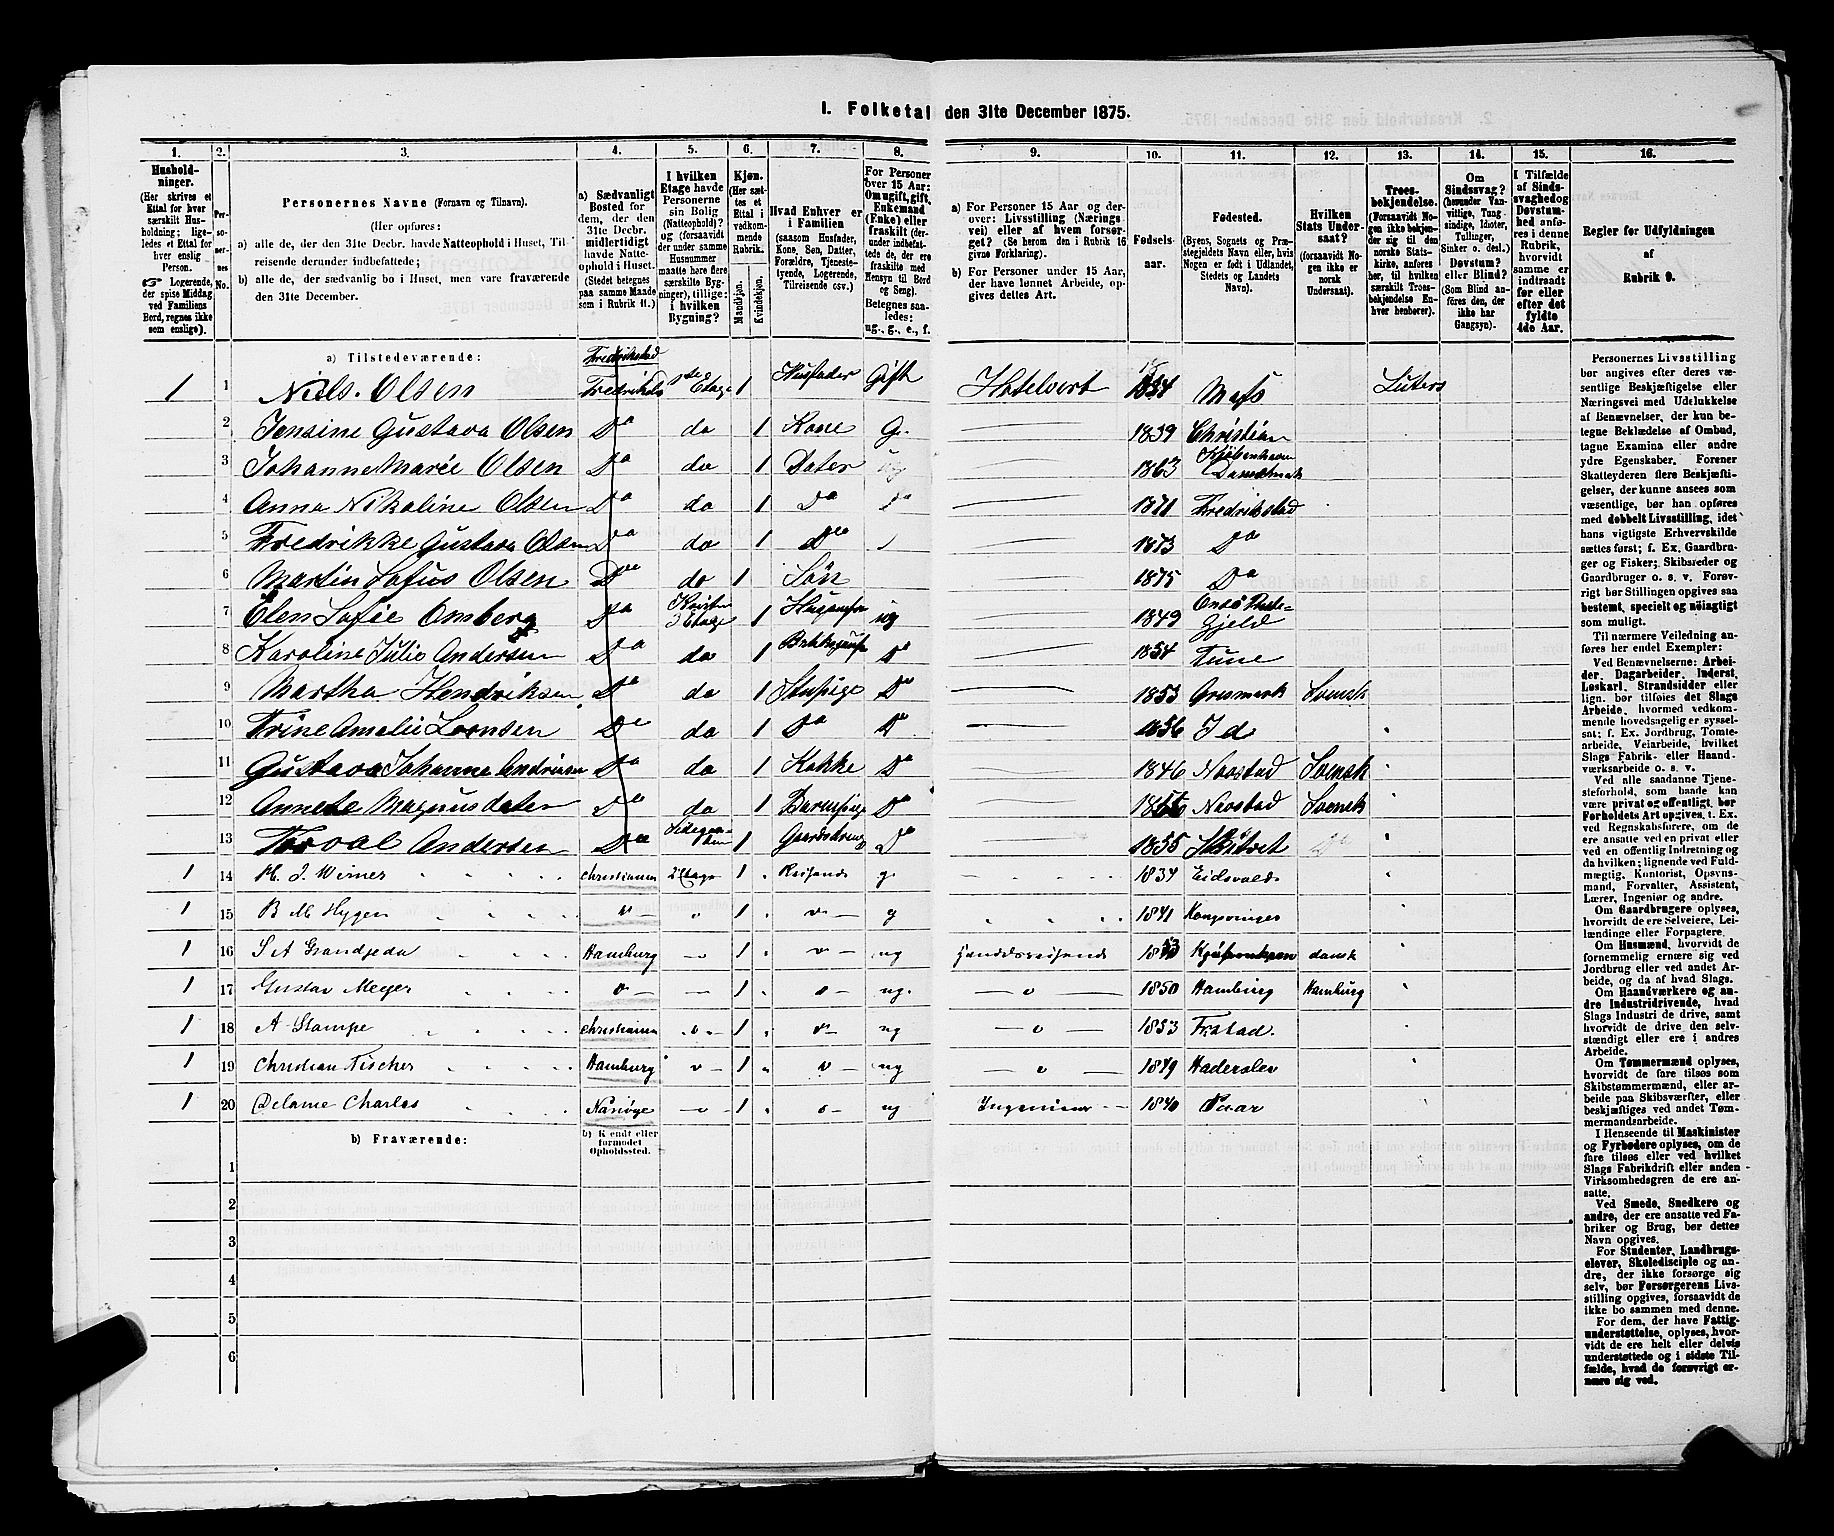 I. Folketal den 31te December 1875.
1. 2. 3. 4. 5. 6. 7. 8. 9. 10. 11. 12. 13. 14. 15. 16.
Husholdninger.
(Her skrives et
Ettal for hver
særskilt Husholdning; ligeledes
et Ettal for
hver enslig
Person.
Logerende,
der spise Middag
ved Familiens
Bord, regnes ikke
som enslige).
Personernes No.
Personernes Navne (Fornavn og Tilnavn).
(Her opføres:
a) alle de, der den 31te Decbr. havde Natteophold i Huset, Tilreisende
derunder indbefattede;
b) alle de, der sædvanlig bo i Huset, men vare fraværende
den 31te December.
a) Sædvanligt
Bosted for
dem, der den
31te Decbr.
midlertidigt
havde Natteophold
i Huset.
(Stedet betegnes
paa samme Maade
som i Rubrik 11.)
I hvilken
Etage havde
Personerne
sin Bolig
(Natteophold)?
og (forsaavidt
der under samme
Husnummer
maatte høre flere
særskilte Bygninger),
tillige:
i hvilken
Bygning?
Kjøn.
(Her sættes
et
Ettal i
vedkommende
Rubrik.
Mandkjøn.
Kvindekjøn.
Hvad Enhver er
i Familien
(saasom Husfader,
Kone, Søn, Datter,
Forældre, Tjenestetyende,
Logerende,
Tilreisende osv.)
For Personer
over 15 Aar:
Om ugift, gift,
Enkemand
(Enke) eller
fraskilt (derunder
indbefattede
de, der ere
fraskilte med
Hensyn til Bord
og Seng).
Betegnes saaledes:
ug., g., e., f.
a) For Personer 15 Aar og derover:
Livsstilling (Næringsvei)
eller af hvem forsørget?
(Se herom den i Rubrik 16
givne Forklaring).
b) For Personer under 15 Aar,
der have lønnet Arbeide, opgives
dettes Art.
Fødselsaar.
Fødested.
(Byens, Sognets og Præstegjeldets
Navn eller, hvis
Nogen er født i Udlandet,
Stedets og Landets
Navn).
Hvilken
Stats Undersaat?
(forsaavidt Nogen
ikke er
norsk
Undersaat).
Troesbekjendelse.
(Forsaavidt Nogen
ikke bekjender
sig til den
norske Statskirke,
anføres
her, til hvilken
særskilt Troesbekjendelse
Enhver
henhører).
Om
Sindssvag?
(herunder Vanvittige,
Tungsindige,
Idioter,
Tullinger,
Sinker o. desl.)
Døvstum?
eller Blind?
(Som Blind anføres
den, der
ikke har
Gangsyn).
I Tilfælde
af Sindssvaghed og
Døvstumhed
anføres
i denne
Rubrik,
hvorvidt
samme er
indtraadt
før eller
efter det
fyldte
4de Aar.
Regler for Udfyldningen
af
Rubrik 9.
a) Tilstedeværende:
Fredrikstad
1 1 Niels. Olsen Fredrikstad 1ste Etage 1 Husfader Gift Hotelvert 1834 Moss Luters
2 Jensine Gustava Olsen Do do 1 Kone G. 1839 Christian
3 Johanne Marie Olsen Do do 1 Dater ug 1863 Kjøbenhavn Danmark
4 Anna Nikoline Olsen Do do 1 Do Do 1871 Fredrikstad
5 Fredrikke Gustava Olsen Do do 1 Do 1873 Do
6 Martin Sofus Olsen Do do 1 Søn 1875 Do
7 Elen Sofie Omberg Do Kvisten 3 Etage 1 ug 1849 Onsø Præstegjeld
8 Karoline Julie Andersen Do do 1 Do 1854 Tune
9 Martha Hendriksen Do do 1 Stupige Do 1853 Gresmark Svensk
10 Trine Amelie Do do 1 Do Do 1856 Id
11 Gustava Johanna Andriasen Do do 1 Kokke Do 1846 Naostad Svensk
12 Annete Magnusdater Do do 1 Barnepige Do Naostad Svensk
13 Torval Andersen Do 1 Gaardsdreng Do 1855 Do
1 14 J. Wimer Christiania 2 Etage 1 Reisende g. 1834 Eidsvold
1 15 B M Hygen v 1 v g 1841 Kongsvinger
1 16 S A Grandjeda Hamburg v 1 v ug Handelsreisende Kjøbenhavn dansk
1 17 Gustav Meyer v 1 v ug. v 1850 Hamburg Hamburg
1 18 A Stampe Christiania v 1 v ug v 1853 Frstad.
1 19 Christian Fischer Hamburg v 1 v ug v 1849 Haderslev
1 20 Delame Charles v 1 v ug Ingeniør 1840
b) Fraværende:
b) Kjendt eller
formodet
Opholdssted.
1
2
3
4
5
6
Personernes Livsstilling
bør angives efter deres væsentlige
Beskjæftigelse eller
Næringsvei med Udelukkelse
af Benævnelser, der kun betegne
Beklædelse af Ombud,
tagne Examina eller andre
ydre Egenskaber. Forener
Skatteyderen flere Beskjæftigelser,
der kunne ansees som
væsentlige, bør han opføres
med dobbelt Livsstilling, idet
hans vigtigste Erhvervskilde
sættes først; f. Ex. Gaardbruger
og Fisker; Skibsreder og
Gaardbruger o. s. v. Forøvrigt
bør Stillingen opgives saa
bestemt, specielt og nøiagtigt
som muligt.
Til nærmere Veiledning anføres
her endel Exempler:
Ved Benævnelserne: Arbeider,
Dagarbeider, Inderst,
Løskarl, Strandsidder eller
lign. bør tilføies det Slags
Arbeide, hvormed vedkommende
hovedsagelig er sysselsat;
f. Ex. Jordbrug, Tomtearbeide,
Veiarbeide, hvilket
Slags Fabrik- eller Haandværksarbeide
o. s. v.
Ved alle saadanne Tjenesteforhold,
som baade kan
være privat og offentligt, bør
Forholdets Art opgives, t. Ex.
ved Regnskabsførere, om de
ere ansatte ved en privat eller
ved en offentlig Indretning og
da hvilken; lignende ved Fuldmægtig,
Kontorist, Opsynsmand,
Forvalter, Assistent,
Lærer, Ingeniør og andre.
Om Gaardbrugere oplyses,
hvorvidt de ere Selveiere, Leilændinge
eller Forpagtere.
Om Husmænd, hvorvidt de
fornemmelig ernære sig ved
Jordbrug eller ved andet Arbeide,
og da af hvad Slags.
Om Haandværkere og andre
Industridrivende, hvad
Slags Industri de drive, samt
hvorvidt de drive den selvstændigt
eller ere i andres
Arbeide.
Om Tømmermænd oplyses,
hvorvidt de fare tilsøs som
Skibstømmermænd, eller arbeide
paa Skibsværfter, eller
beskjæftiges ved andet Tømmermandsarbeide.
I Henseende til Maskinister
og Fyrbødere oplyses, om de
fare tilsøs eller ved hvilket
Slags Fabrikdrift eller anden
Virksomhedsgren de ere ansatte.
Ved Smede, Snedkere og
andre, der ere ansatte ved Fabriker
og Brug, bør dettes
Navn opgives.
For Studenter, Landbrugselever,
Skoledisciple og andre,
der ikke forsørge sig
selv, bør Forsørgerens Livsstilling
opgives, forsaavidt de
ikke bo sammen med denne.
For dem, der have Fattigunderstøttelse,
oplyses, hvorvidt
de ere helt eller delvis
understøttede og i sidste Tilfælde,
hvad de forøvrigt ernære
sig ved.